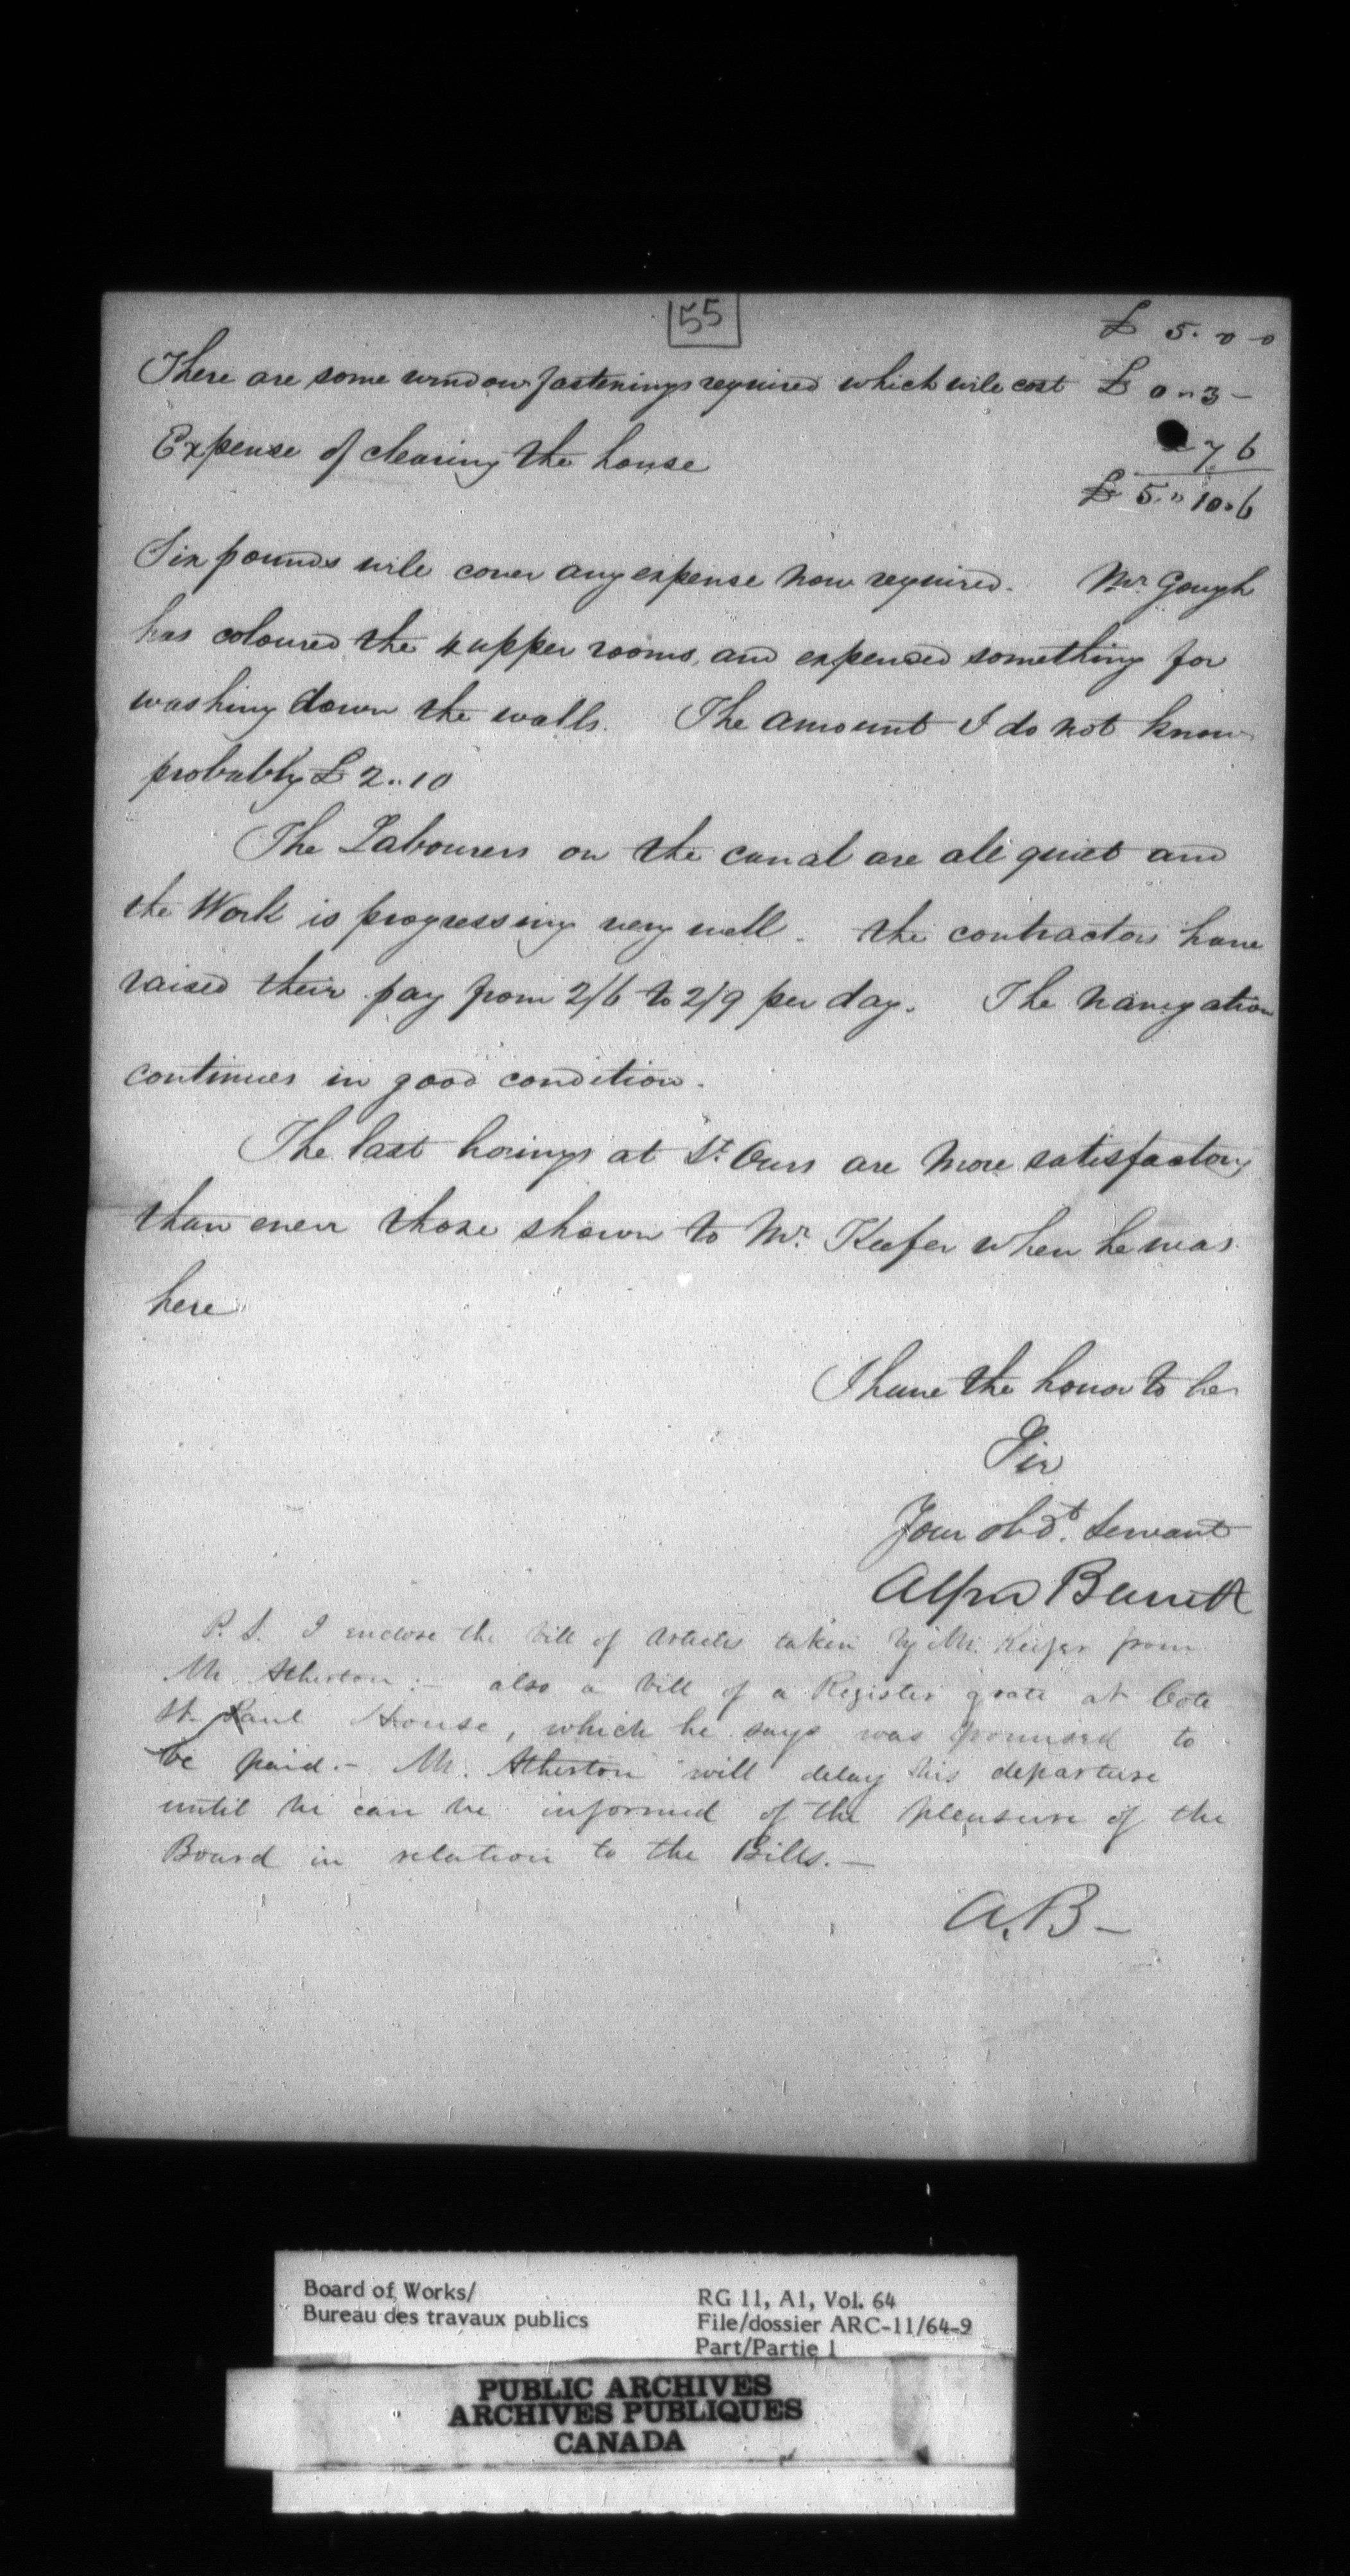 55
£ 5. 0 0
There are some window fastenings required which will cost £ 0 " 3 -
Expense of cleaning the house 7 6
£ 5 " 10 " 6
Six pounds will cover any expense now required. Mr. Gough
has coloured the 4 upper rooms, and expended something for
washing down the walls. The amount I do not know
probably £ 2 " 10
The Labourers on the canal are all quiet and
the Work is progressing very well. the contractors have
raised their pay from 2/6 to 2/9 per day. The navigation
continues in good condition.
The last borings at St. Ours are more satisfactory
than even those shown to Mr. Keefer when he was
here
I have the honor to be
Sir
Your obdt. Servant
Alfred Barrett
P.S. I enclose the bill of Articles taken by Mr. Keefer from
Mr Atherton :- also a bill of a Register grate at Cote
St. Paul House, which he says was promised to
be paid. - Mr. Atherton will delay his departure
until he can be informed of the pleasure of the
Board in relation to the Bills. -
A.B -
Board of Works/
Bureau des travaux publics
RG 11, A1, Vol. 64
File/dossier ARC-11/64-9
Part/Partie 1
PUBLIC ARCHIVES
ARCHIVES PUBLIQUES
CANADA